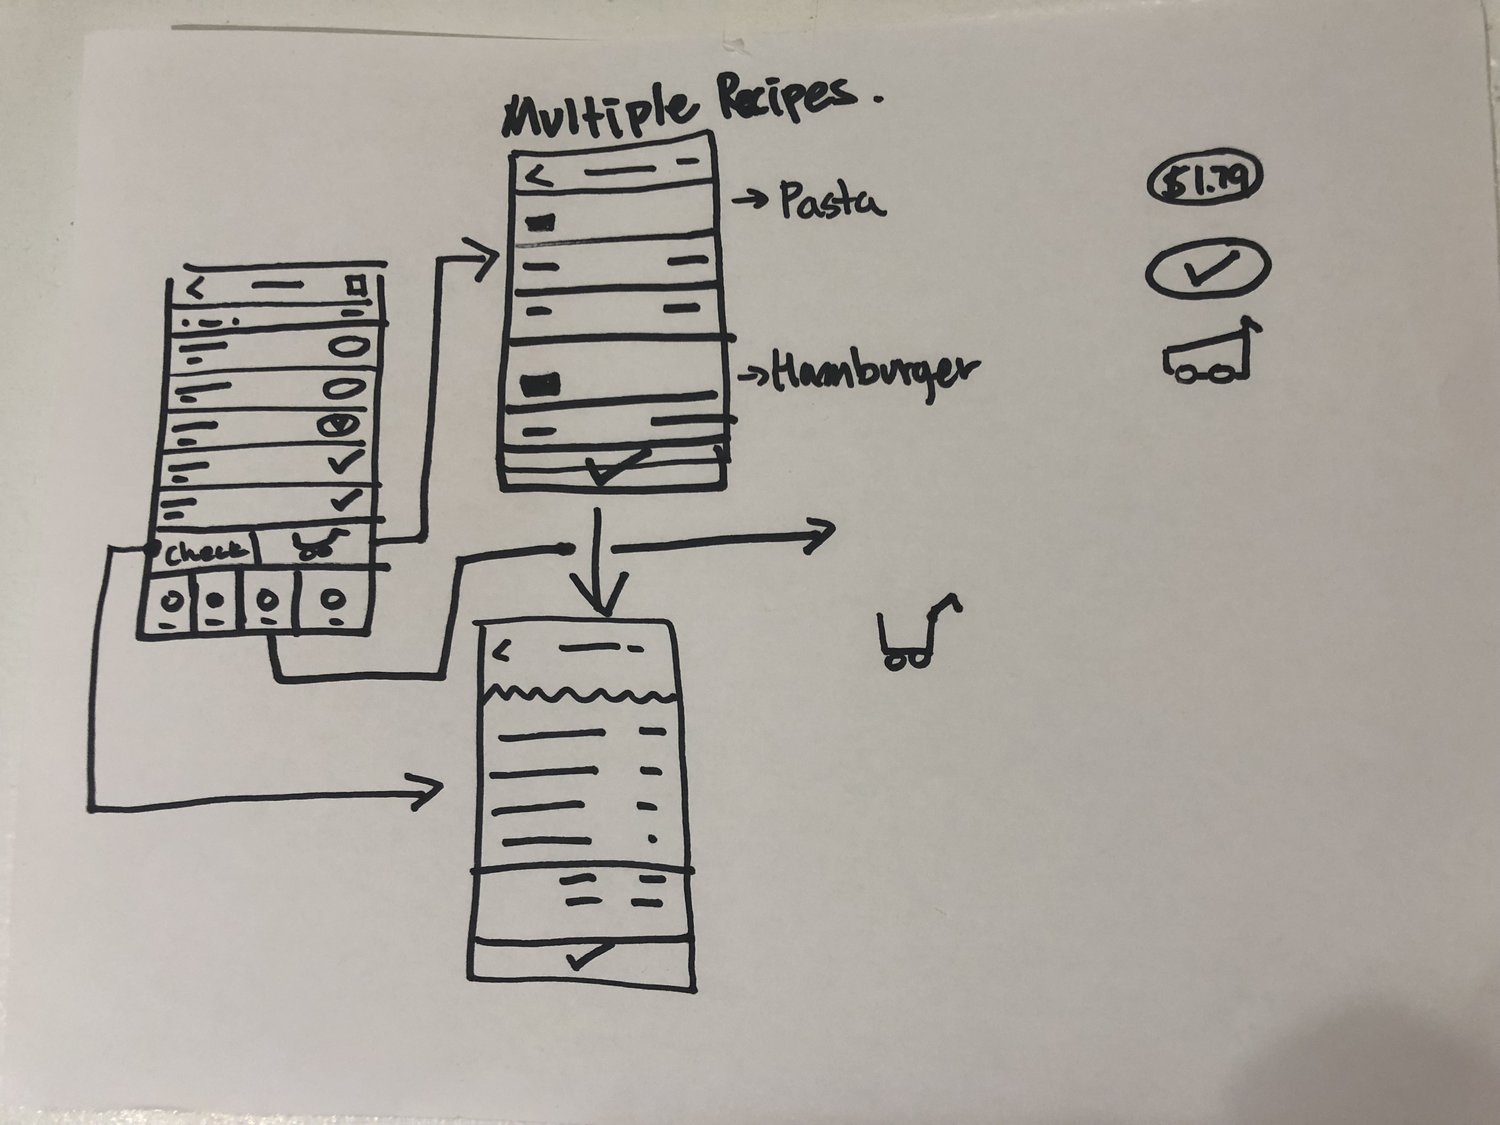 Multiple Recipes.
→ Pasta
$1.79
→ Hamburger
check